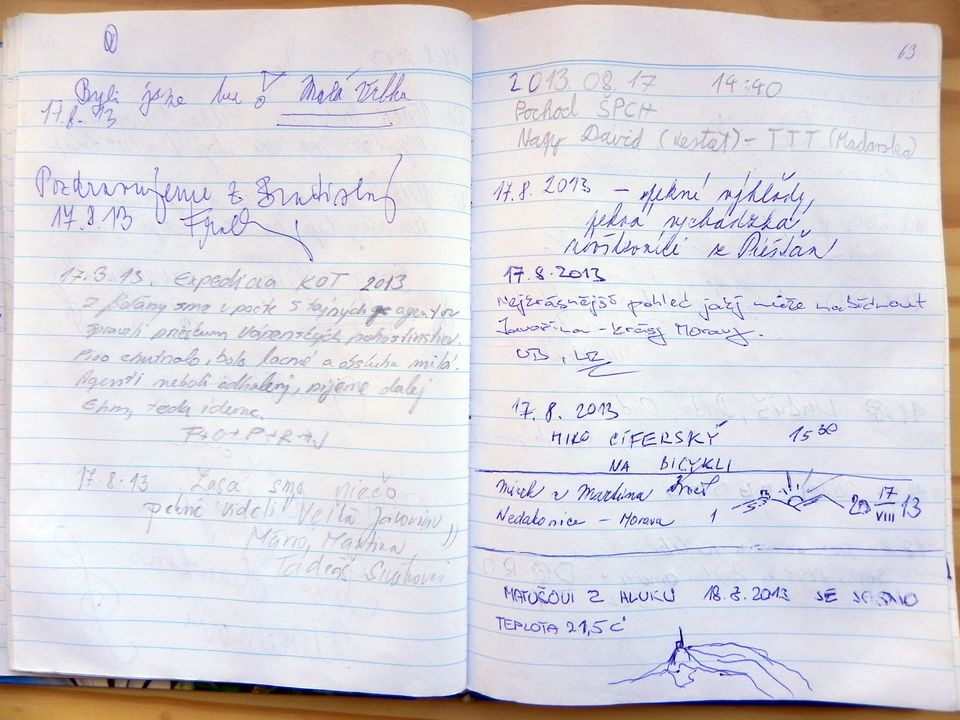 Byli jsme tu Malá Vrbka
17.8.13
Pozdravujeme z Bratislavy
17.8.13
17.8.13. Expedícia KOT 2013
z sme v počte 5 tajných agentov
Pivo chutnalo, bolo lacné a obsluha milá.
Agenti neboli odhalený, pijeme dalej
Ehm, teda ideme.
F+O+P+R+J
17.8.13 Zasa sme niečo
pekné videli Veľká Javorina
Maňo, Martina,
Tadeáš
63
2013 08.17 14:40
Pochod ŠPCH
Nagy David (Kestat) - TTT (Maďarsko)
17.8.2013 - pekné výhľady,
pekná vychádzka
z Piešťan!
17.8.2013
Nejkrásnější pohled jaký může nabídnout
Javořina - krásy Moravy.
UB, LZ
17. 8. 2013
MIRO CÍFERSKÝ 15 30
NA BICYKLI
Mirek z Martina
Nedakonice - Morava 1 20 17/VIII 13
MATUŠOVI Z HLUKU 18.8.2013 SE
TEPLOTA 21,5 C